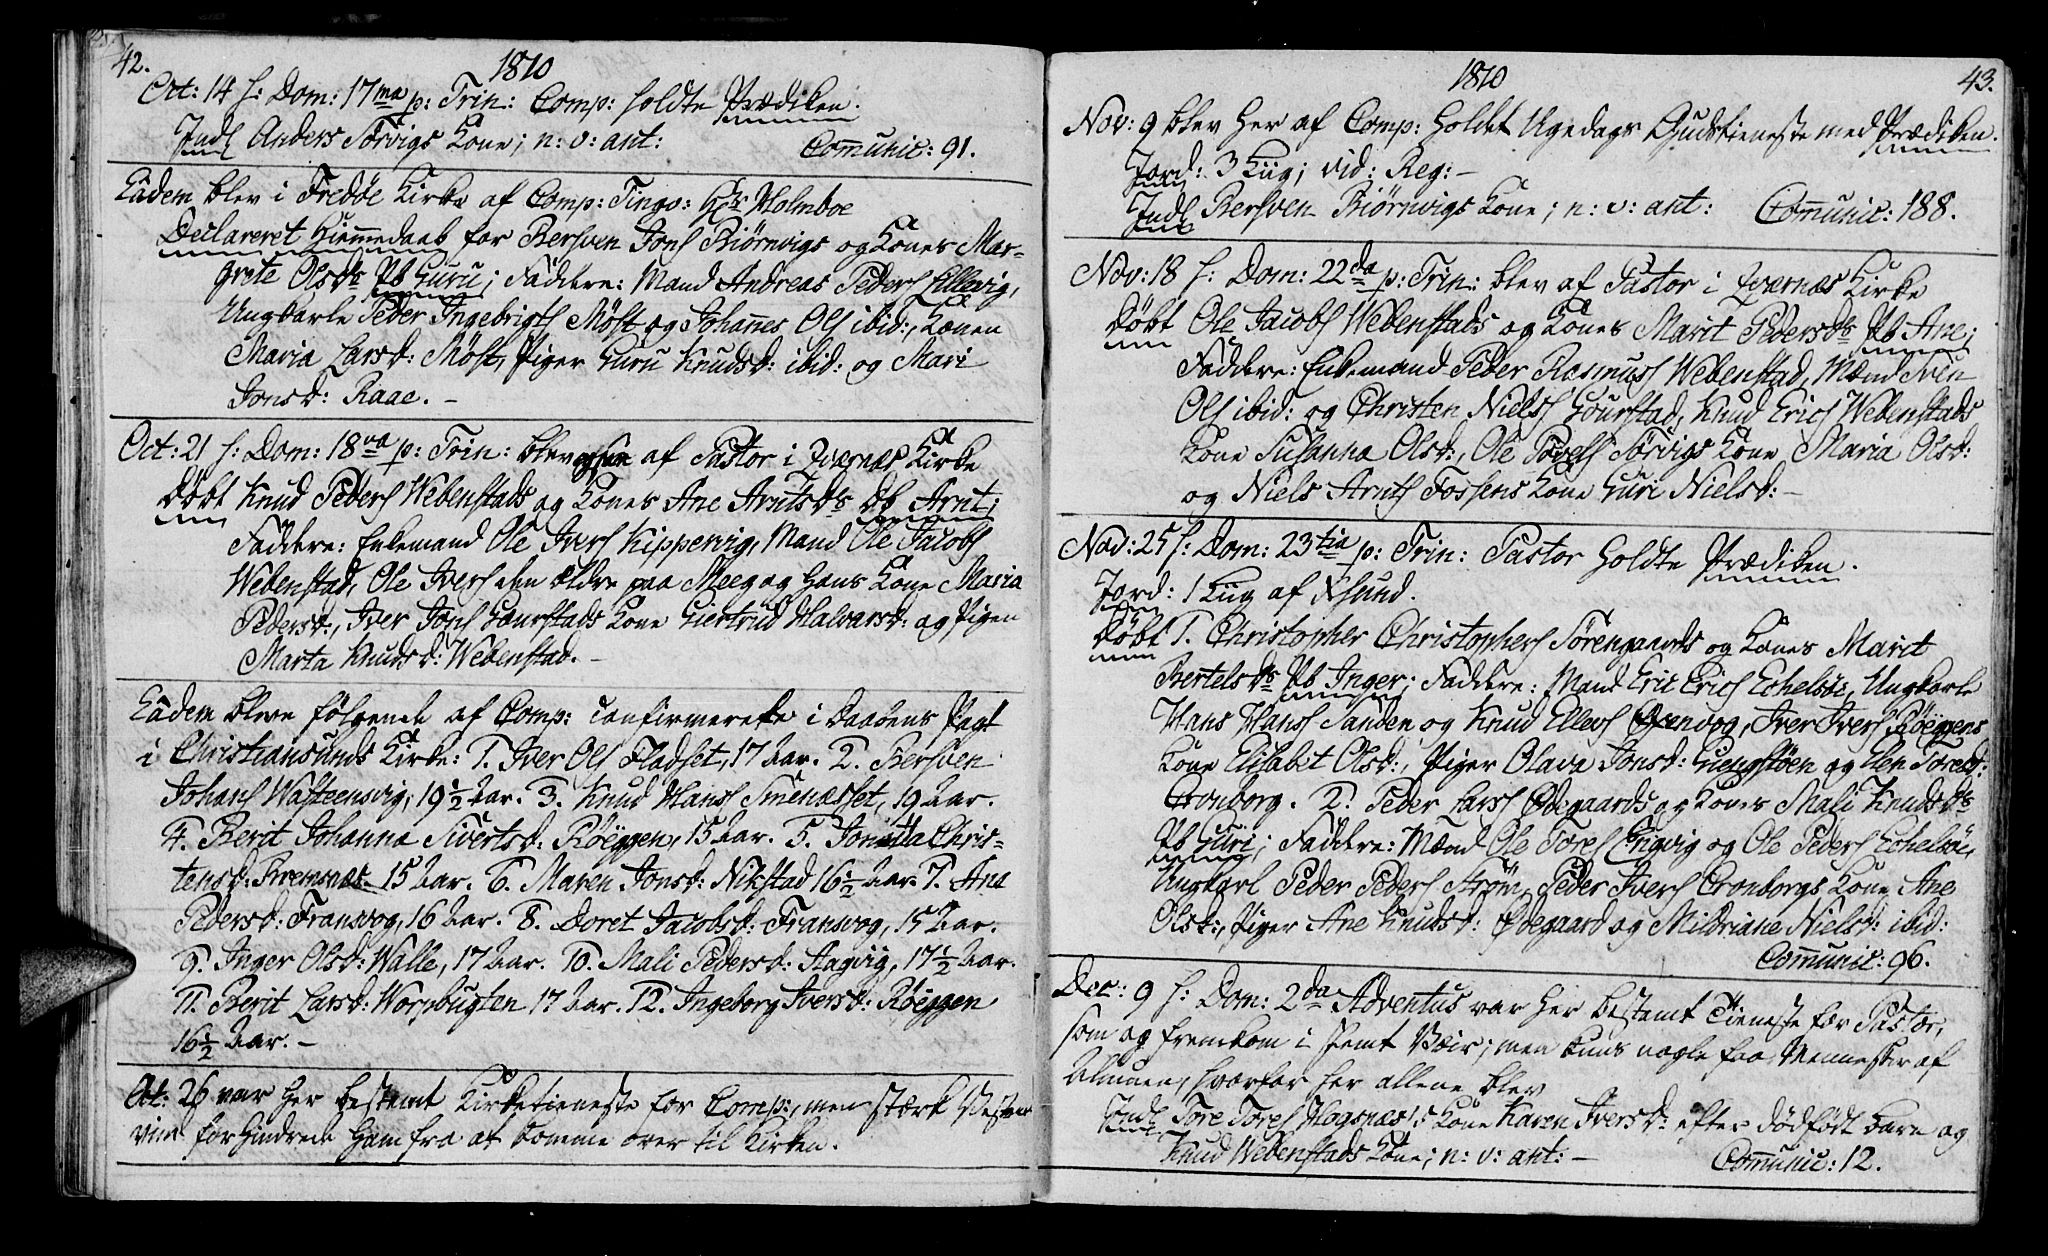 42.
1810
Oct: 14 f: Dom: 17ma p: Trin: Comp: holdte Prædiken.
Indl Anders Torvigs Kone; n: v: ant: Comunic: 91.
Eâdem blev i Fredøe Kirke af Comp: Tingv: Hr Holmboe
Declareret Hiemmedaab for Bersven Jons Biørnvigs og Kones Mar-
grete Olsdr Pb Guru; Faddere: Mand Andreas Peders Ellevig,
Ungkarle Peder Ingebrigts Møst og Johannes Ols ibid:, Konen
Maria Larsd: Møst, Piger Guru Knudsd: ibid: og Mari
Jonsd: Raae. -
Oct: 21 f: Dom: 18va p: Trin: blev af Pastor i Qværnæs Kirke
Døbt Knud Peders Webenstads og Kones Ane Arntsdr Db Arnt;
Faddere: Enkemand Ole Ivers Kippervig, Mand Ole Jacobs
Webenstad, Ole Ivers den ældre paa Meeg og Hans Kone Maria
Pedersd:, Iver Jons Gaurstads Kone Giertrud Halvarsd: og Pigen
Marta Knudsd: Webenstad. -
Eâdem bleve følgende af Comp: confirmerede i Daabens Pagt
i Christiansunds Kirke: 1. Iver Ols Fladset, 17 Aar. 2. Bersven
Johans Wasteensvig, 19 1/2 Aar. 3. Knud Hanss Smenæsset, 19 Aar.
4. Berit Johanna Sivertsd: Røeggen, 15 Aar. 5. Jonetta Chris-
tensd: Bremsnæs 15 Aar. 6. Maren Jonsd: Nikstad 16 1/2 Aar. 7. Ane
Pedersd: Fransvog, 16 Aar. 8. Doret Jacobsd: Fransvog, 15 Aar.
9. Inger Olsd: Walle, 17 Aar. 10. Mali Pedersd: Aagvig, 17 1/2 Aar.
11. Berit Larsd: Worpbugten 17 Aar. 12. Ingeborg Iversd: Røeggen
16 1/2 Aar. -
Oct: 26 var her bestemt Kirketieneste for Comp:, men stærk Vesten
vind forhindrede ham fra at komme over til Kirken.
1810
43.
Nov: 9 blev her af Comp: holdet Ugedags Gudstieneste med Prædiken.
Jord: 3 Liig; vid: Reg: -
Indl Bersven Biørnvigs Kone; n: v: ant: Comunic: 188.
Nov: 18 f: Dom: 22da p: Trin: blev af Pastor i Qværnæs Kirke
Døbt Ole Jacobs Webenstads og Kones Marit Pedersdr Pb Ane;
Faddere: Enkemand Peder Rasmuss Webenstad, Mænd Sven
Ols ibid: og Christen Niels Gourstad, Knud Erics Webenstads
Kone Susanna Olsd:, Ole Povels Torvigs Kone Maria Olsd:
og Niels Arnts Fossens Kone Guri Nielsd: -
Nov: 25 f: Dom: 23tia p: Trin: Pastor holdte Prædiken.
Jord: 1 Liig af Xsund.
Døbt 1. Christopher Christophers Sørengaards og Kones Marit
Bertelsdr Pb Inger; Faddere: Mand Eric Erics Echelsøe, Ungkarle
Hans Hanss Sanden og Knud Ellevs Oxenvog, Iver Ivers Røeggens
Kone Elisabet Olsd:, Piger Olava Jonsd: Giengstøen og Elen Toresd:
Cronborg. 2. Peder Larss Ødegaards og Kones Mali Knudsdr
Pb Guri; Faddere: Mænd Ole Tores Engvig og Ole Peders Echelsøe,
Ungkarl Peder Peders Strøm, Peder Ivers Cronborgs Kone Ane
Olsd:, Piger Ane Knudsd: Ødegaard og Mildriane Nielsd: ibid:
Comunic: 96.
Dec: 9 f: Dom: 2da Adventus var her bestemt Tieneste for Pastor,
som og fremkom i slemt Veir; men kuns nogle faa Mennesker af
Almuen, hvorfor her allene blev
Indl Tore Tores Hogsnæs's Kone Karen Iversd: efter dødfødt Barn og
Knud Webenstads Kone; n: v: ant: - Comunic: 12.